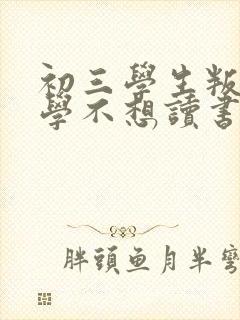 初三學生叛
學不想讀書
胖頭魚月半彎